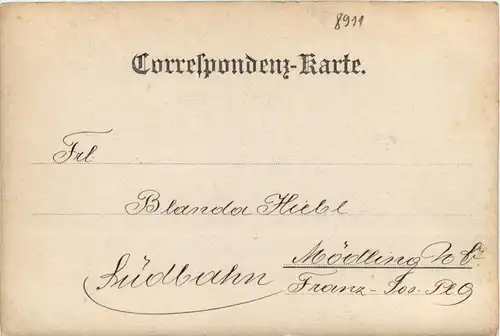 8911
Correspondenz-Karte.
Frl.
Blanda Hiebl
Mödling
Südbahn
Franz-Jos. Pl 9